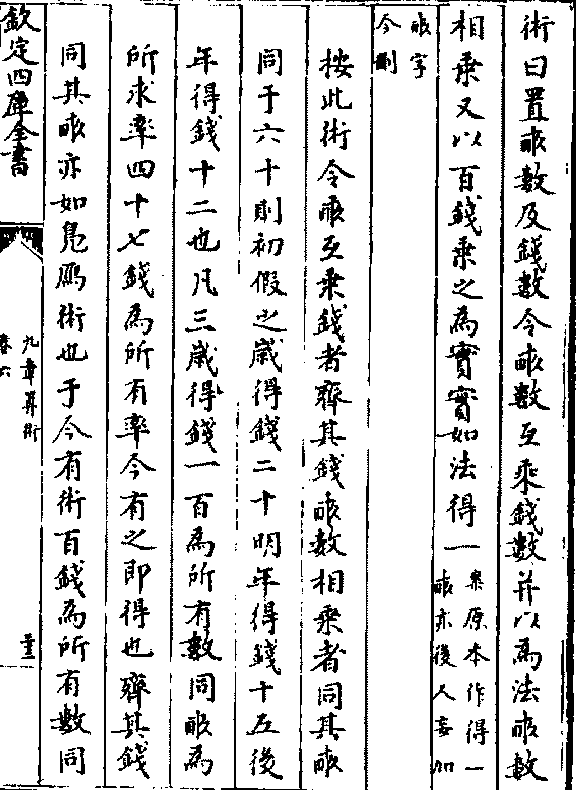 術曰置畝數及錢數令畝數互乘錢數并以為法畝數
相乘又以百錢乘之為實實如法得一案原本作得一
畝亦後人妄加
畝字
今刪
按此術令畝互乘錢者齊其錢畝數相乘者同其畝
同于六十則初假之歲得錢二十明年得錢十五後
年得錢十二也凡三歲得錢一百為所有數同畝為
所求率四十七錢為所有率今有之即得也齊其錢
同其畝亦如鳧鴈術也于今有術百錢為所有數同
欽定四庫全書
九章算術
卷六